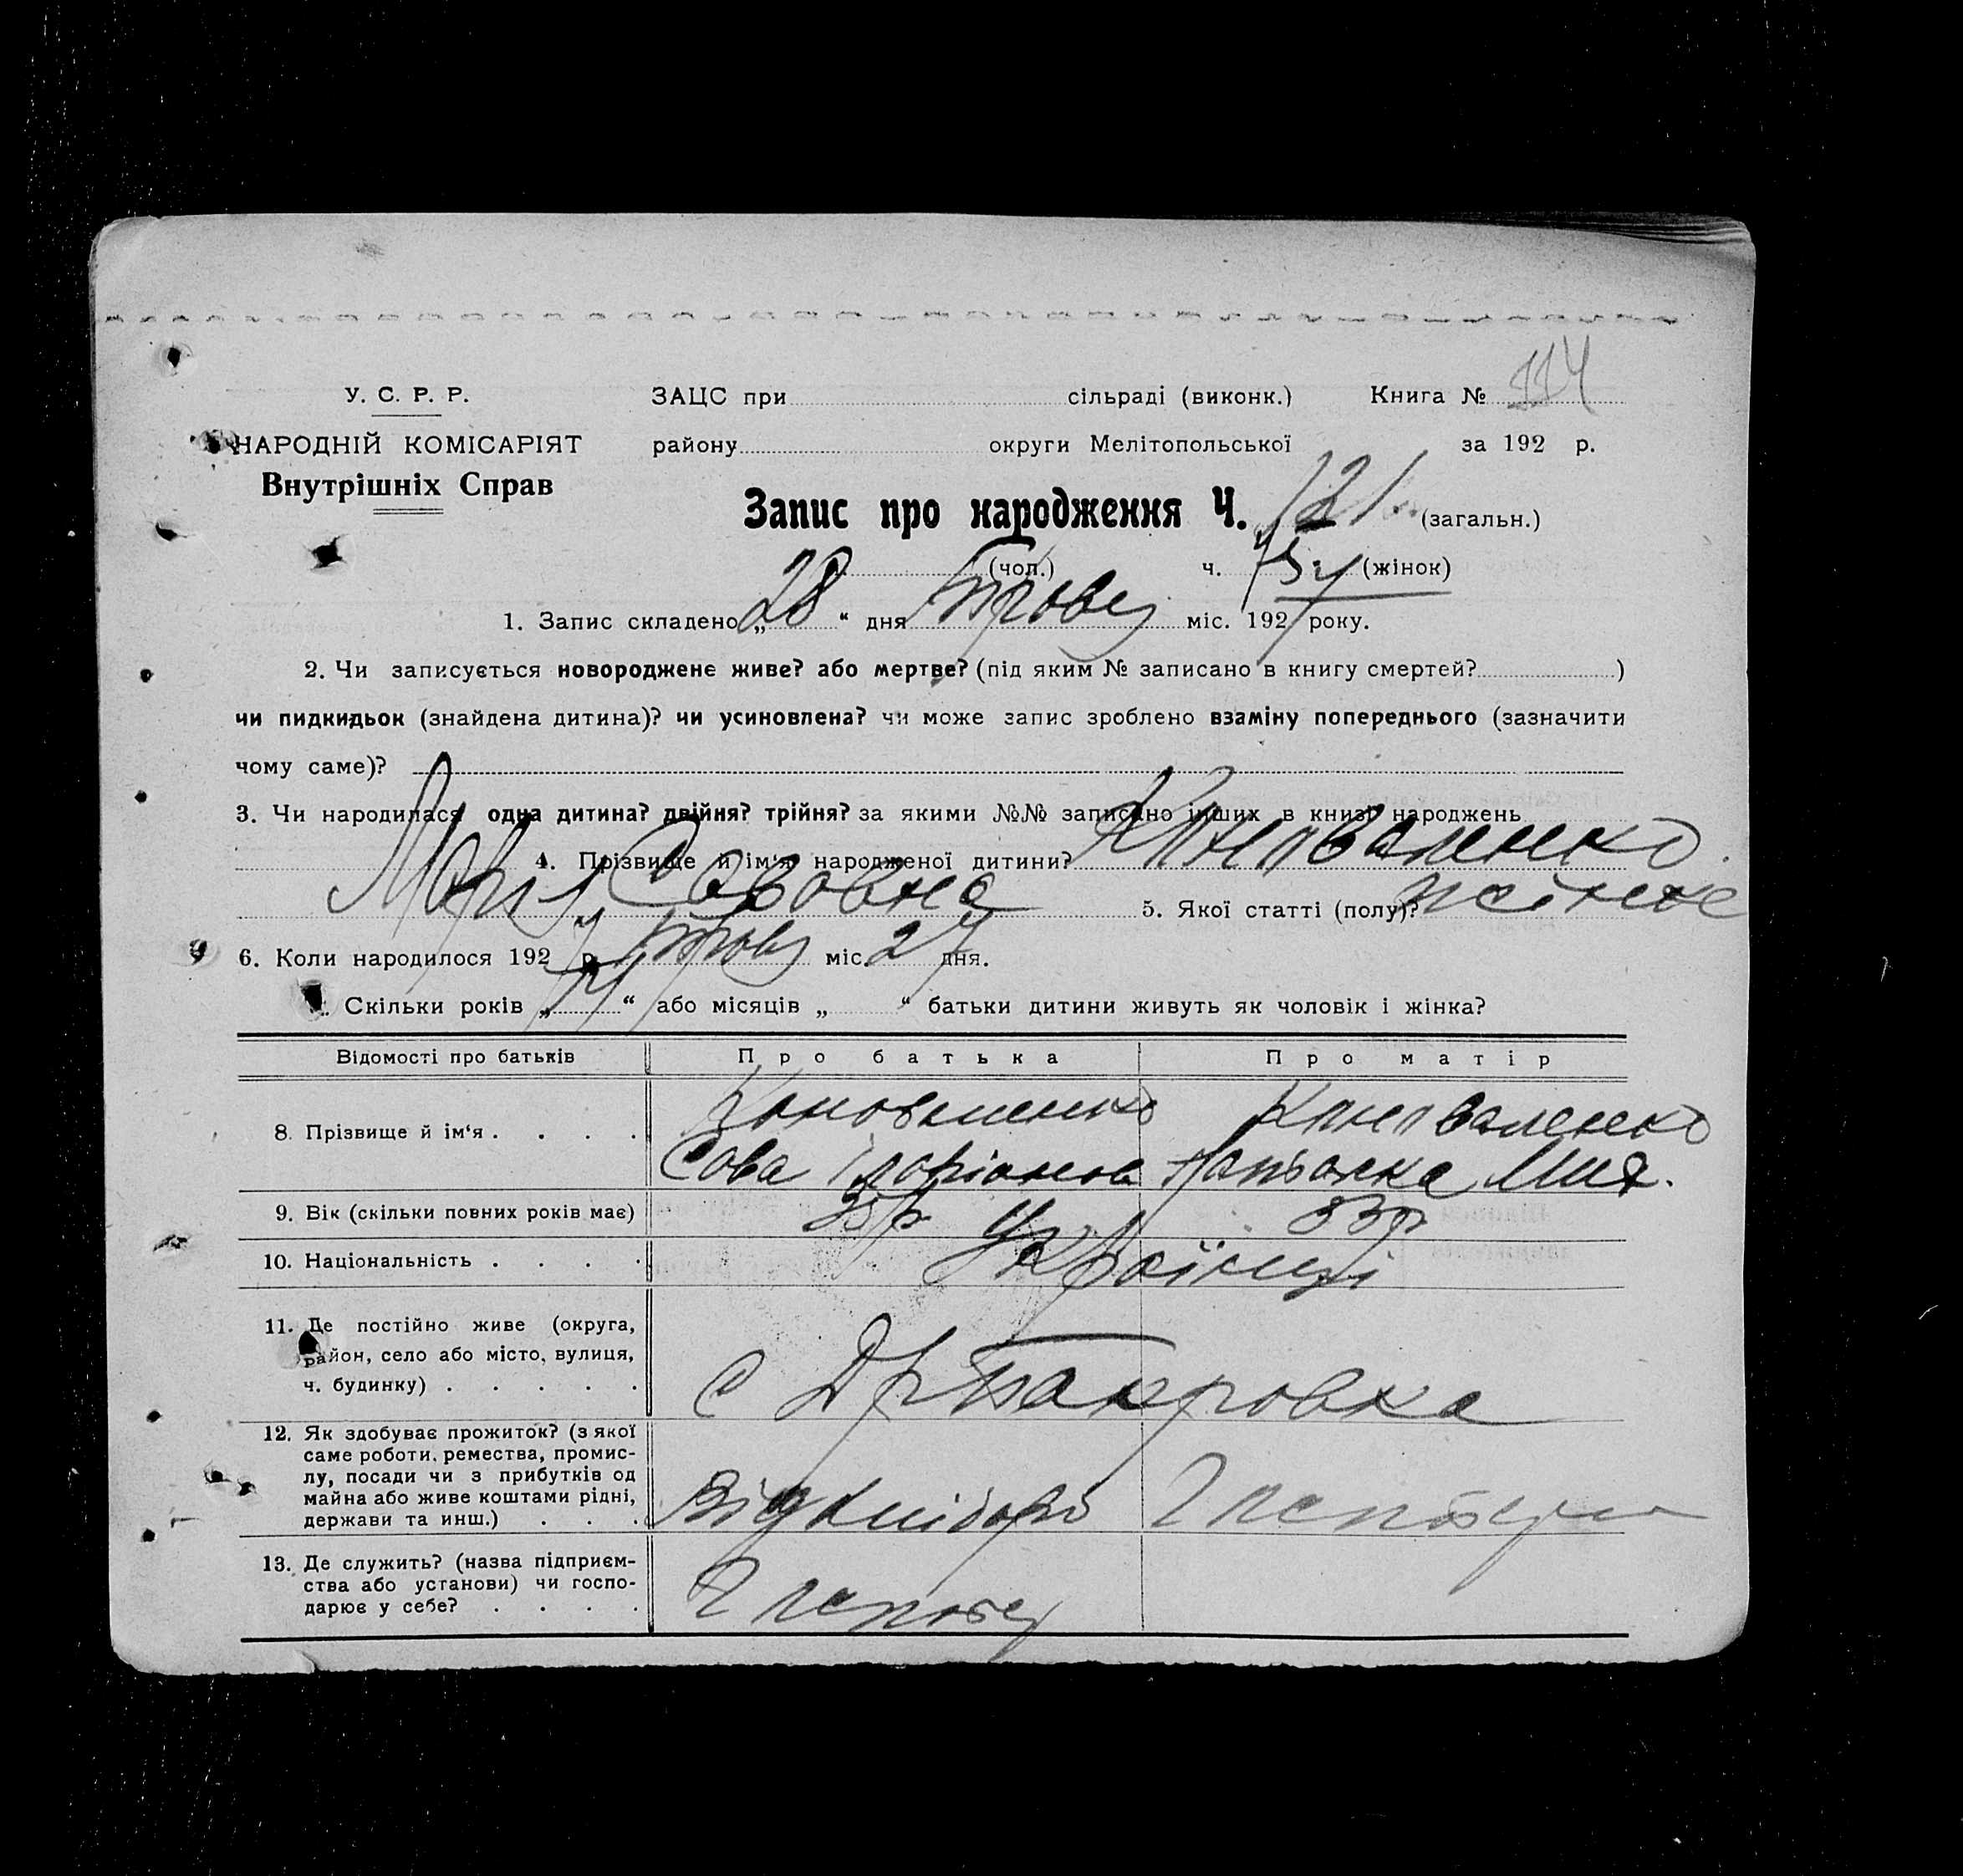 У. С. Р. Р. ЗАЦС при сільраді (виконк.) Книга № 114
НАРОДНІЙ КОМІСАРІЯТ району округи Мелітопольської за 192 р.
Внутрішніх Справ
Запис про народження Ч. 121 (загальн.)
(чол.) ч. (жінок)
1. Запис складено „ 28 “ дня Травня міс. 1927 року.
2. Чи записується новороджене живе? або мертве? (під яким № записано в книгу смертей? )
чи пидкидьок (знайдена дитина)? чи усиновлена? чи може запис зроблено взаміну попереднього (зазначити
чому саме)?
3. Чи народилася одна дитина? двійня? трійня? за якими №№ записано інших в книзі народжень
4. Прізвище й ім‘я народженої дитини? Коноваленко
Марія Савовна 5. Якої статті (полу)? жіноче
6. Коли народилося 1927 р. Трав міс. 27 дня.
Скільки років „ 14 “ або місяців „ “ батьки дитини живуть як чоловік і жінка?
Відомості про батьків Про батька Про матір
8. Прізвище й ім‘я . . . . Коноваленко Коноваленко
Сава
9. Вік (скільки повних років має) 33р
10. Національність . . . . Українці
11. Де постійно живе (округа,
район, село або місто, вулиця,
ч. будинку) . . . . . с
12. Як здобуває прожиток? (з якої
саме роботи, ремества, промис-
лу, посади чи з прибутків од
майна або живе коштами рідні,
держави та инш.) . . .
13. Де служить? (назва підприєм-
ства або установи) чи госпо-
дарює у себе? . . . .